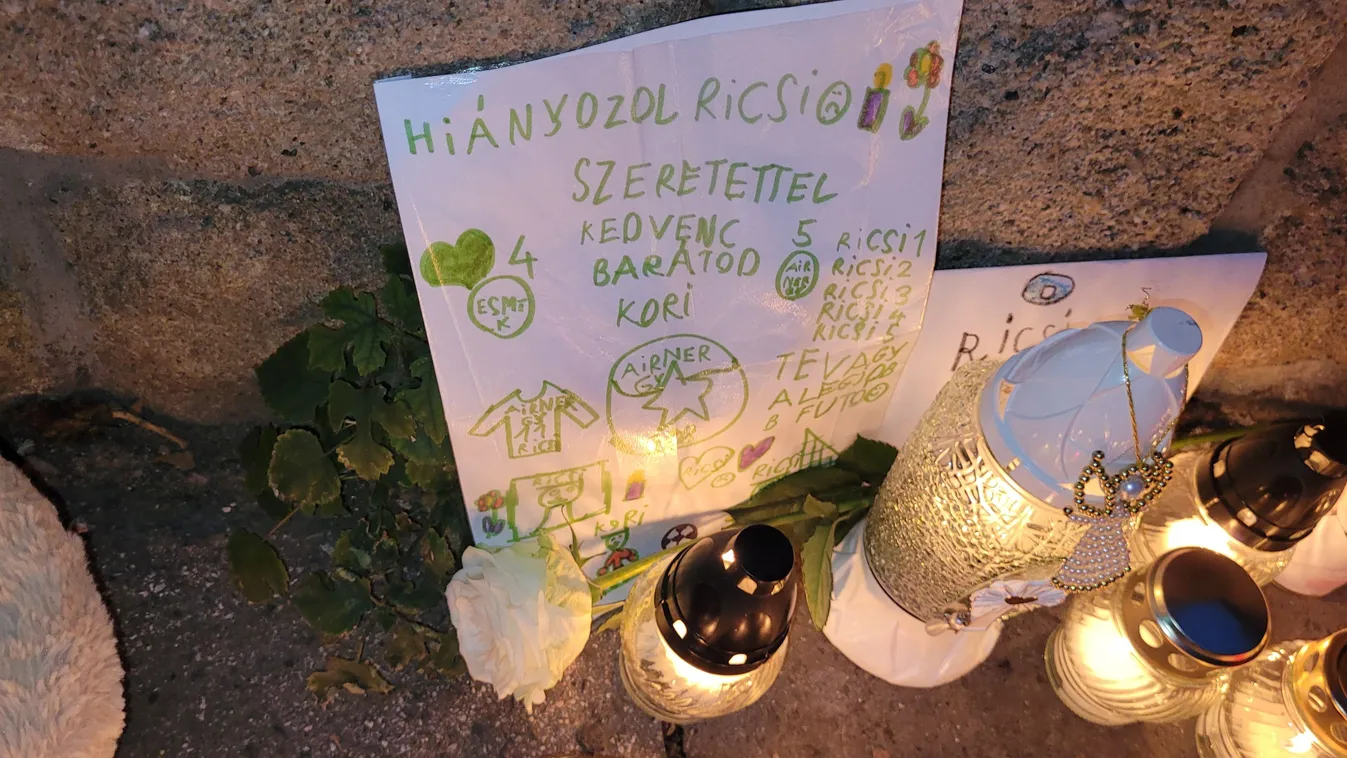 HIÁNYOZOL RICSI
SZERETETTEL
KEDVENC
BARÁTOD
KORI
4
5
RICSI 1
RICSI 2
RICSI 3
RICSI 4
RICSI 5
TE VAGY
A LEGJOB
B FUTO
AIRNER
GY
AIRNER
RICSI
RICSI
RICSI
KORI
RICSI